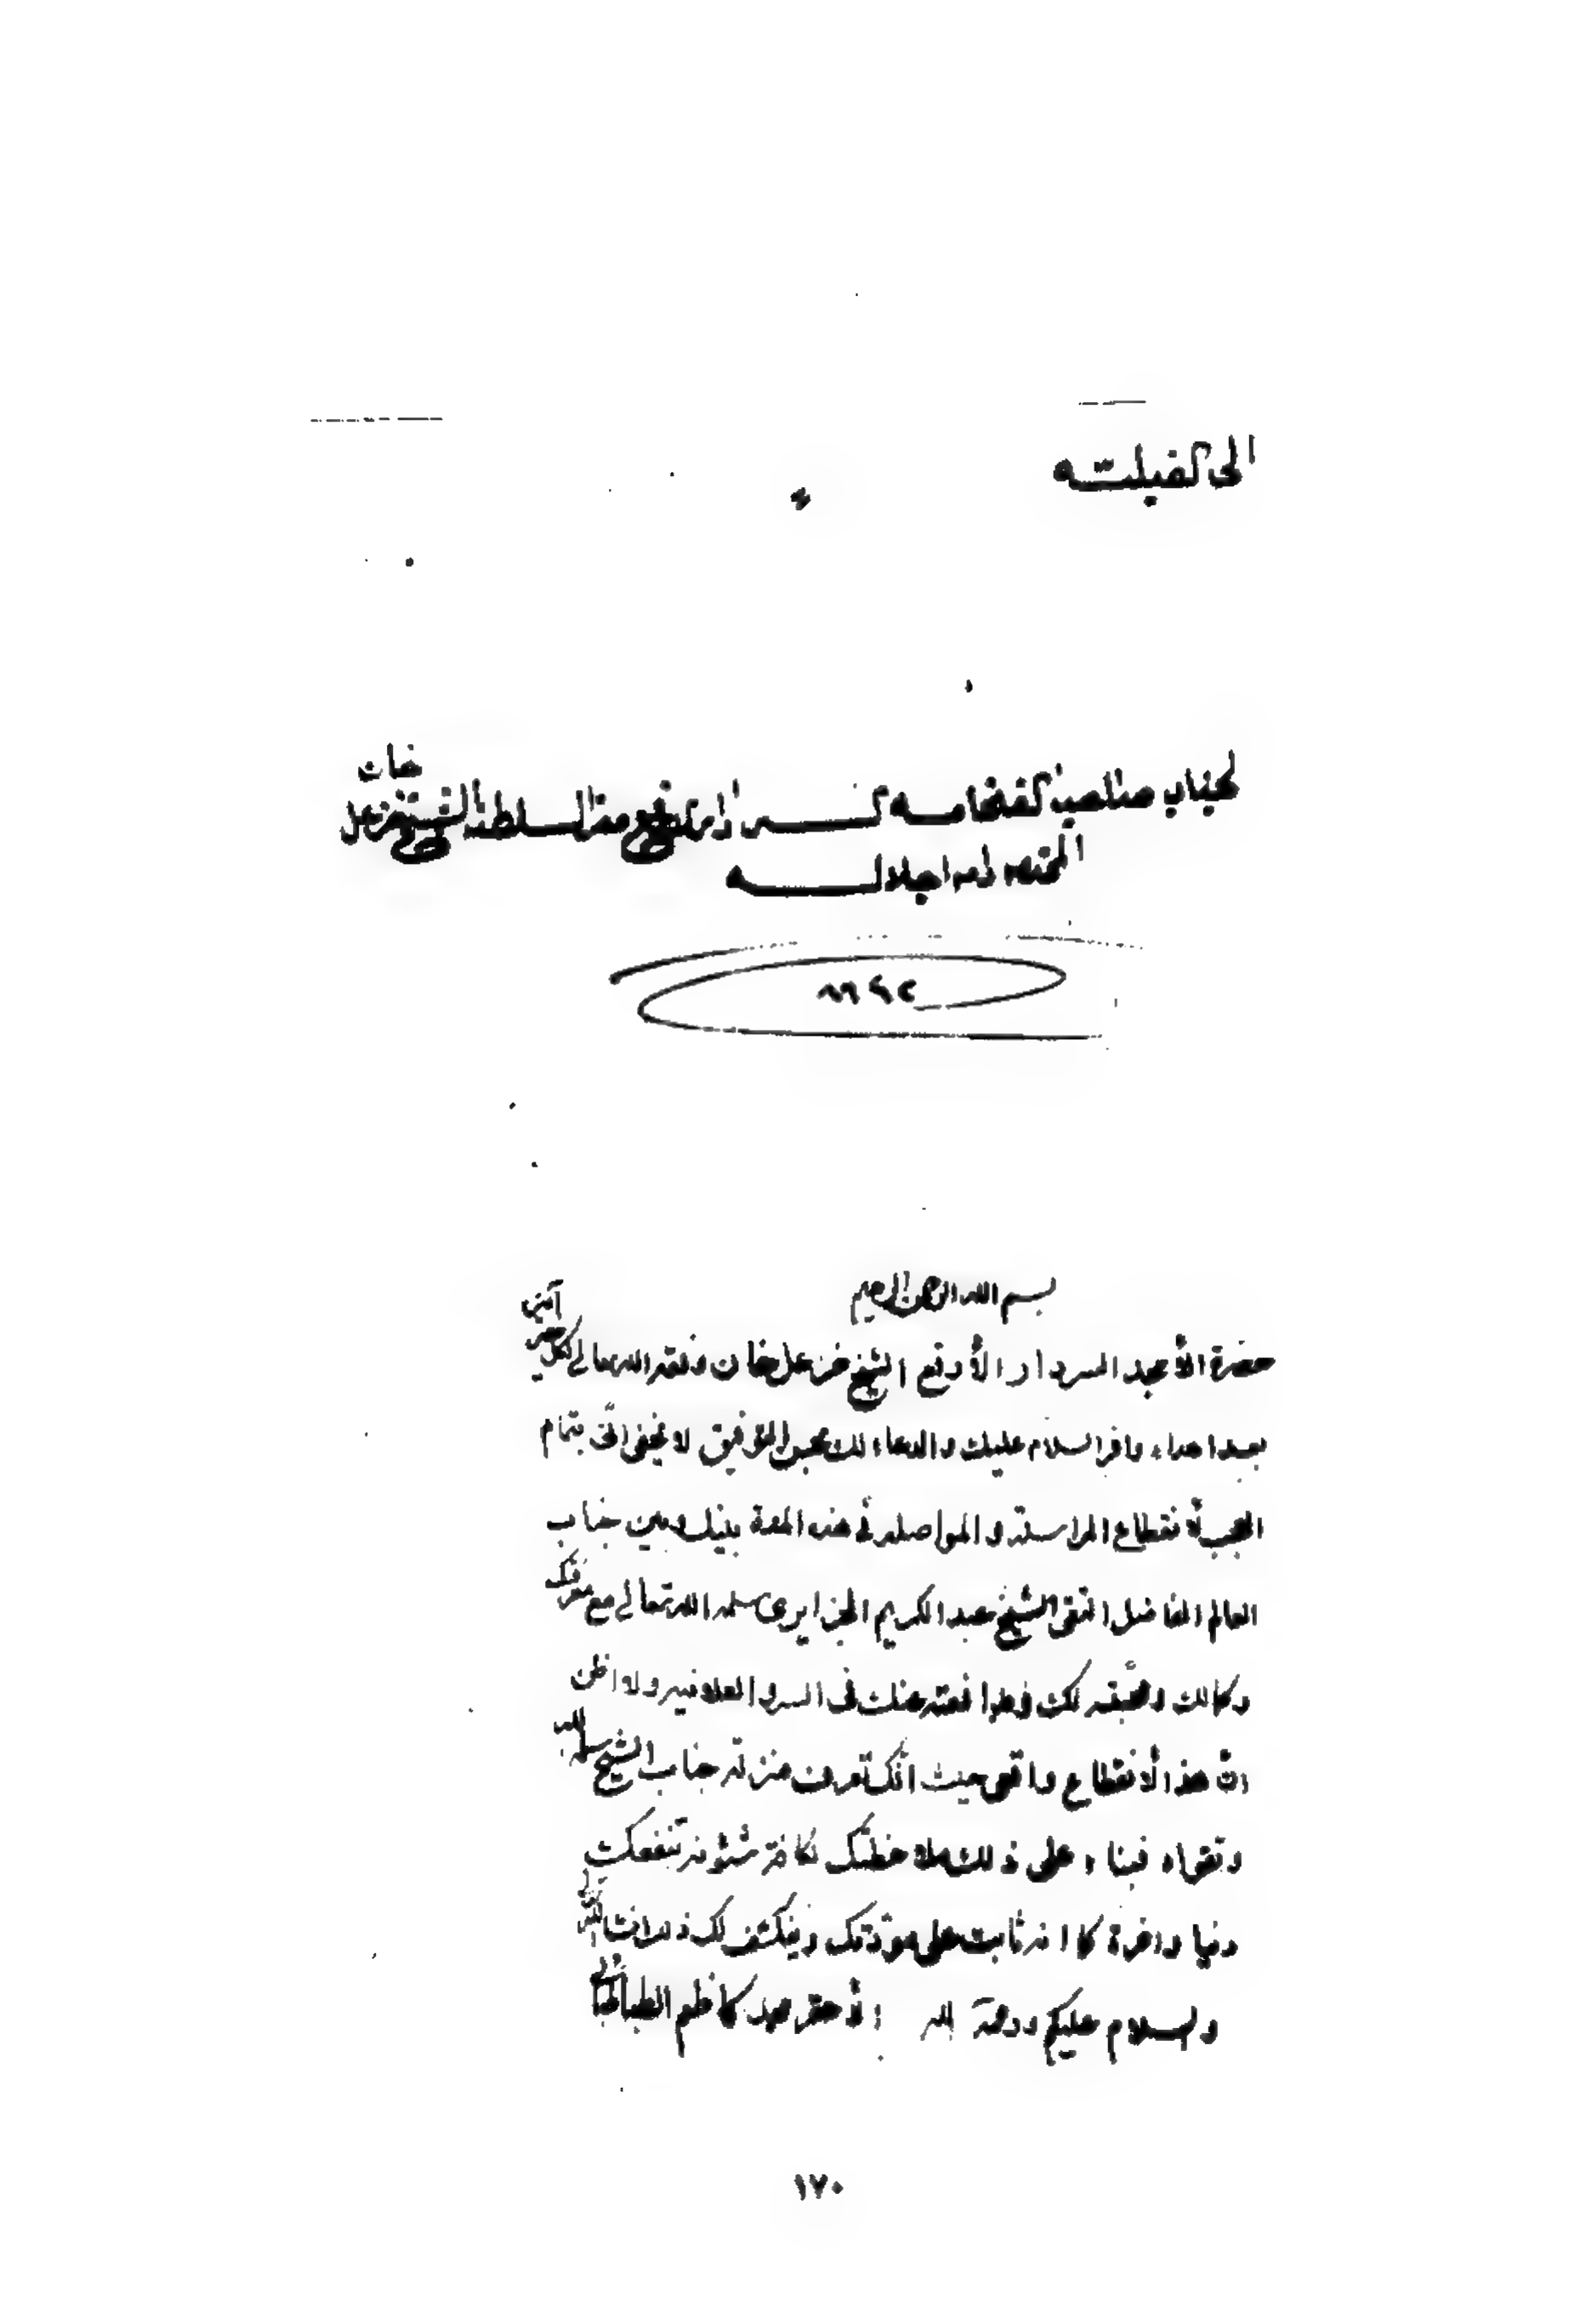 الى الفيلية
لجناب صاحب الفخامه السردار ارفع معز السلطنة الشيخ خزعل خان
المحترم دام اجلاله
٨٦٤٢
بسم الله الرحمن الرحيم
حضرة الأمجد السردار الأرفع الشيخ خزعل خان وفقه الله تعالى لكل خير آمين
بعد اهداء وافر السلام عليك والدعاء لك بمحبس التوفيق لا يخفى انى بتمام
العجب لأنقطاع المراسلة والمواصلة فى هذه المدة بينك وبين جناب
العالم الفاضل التقى الشيخ عبد الكريم الجزايرى سلمه الله تعالى مع معرفتك
وكمالك ومحبته لك فى السر والعلانيه ولا اظن
ان هذا الأنقطاع واقعى حيث انك تعرف منزلة جناب الشيخ سلمه الله
وتقواه فبناء على ذلك ملاحظتك لكافة شؤونه تنفعك
دنيا واخرة كما انه ثابت على مودتك وينكشف لك ذلك انشاء الله تعالى
والسلام عليكم ورحمة الله الأحقر محمد كاظم الطباطبائى
١٧٠